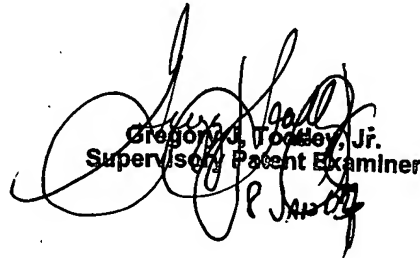 Gregory J. Toatley, Jr.
Supervisory Patent Examiner
8 JAN 04